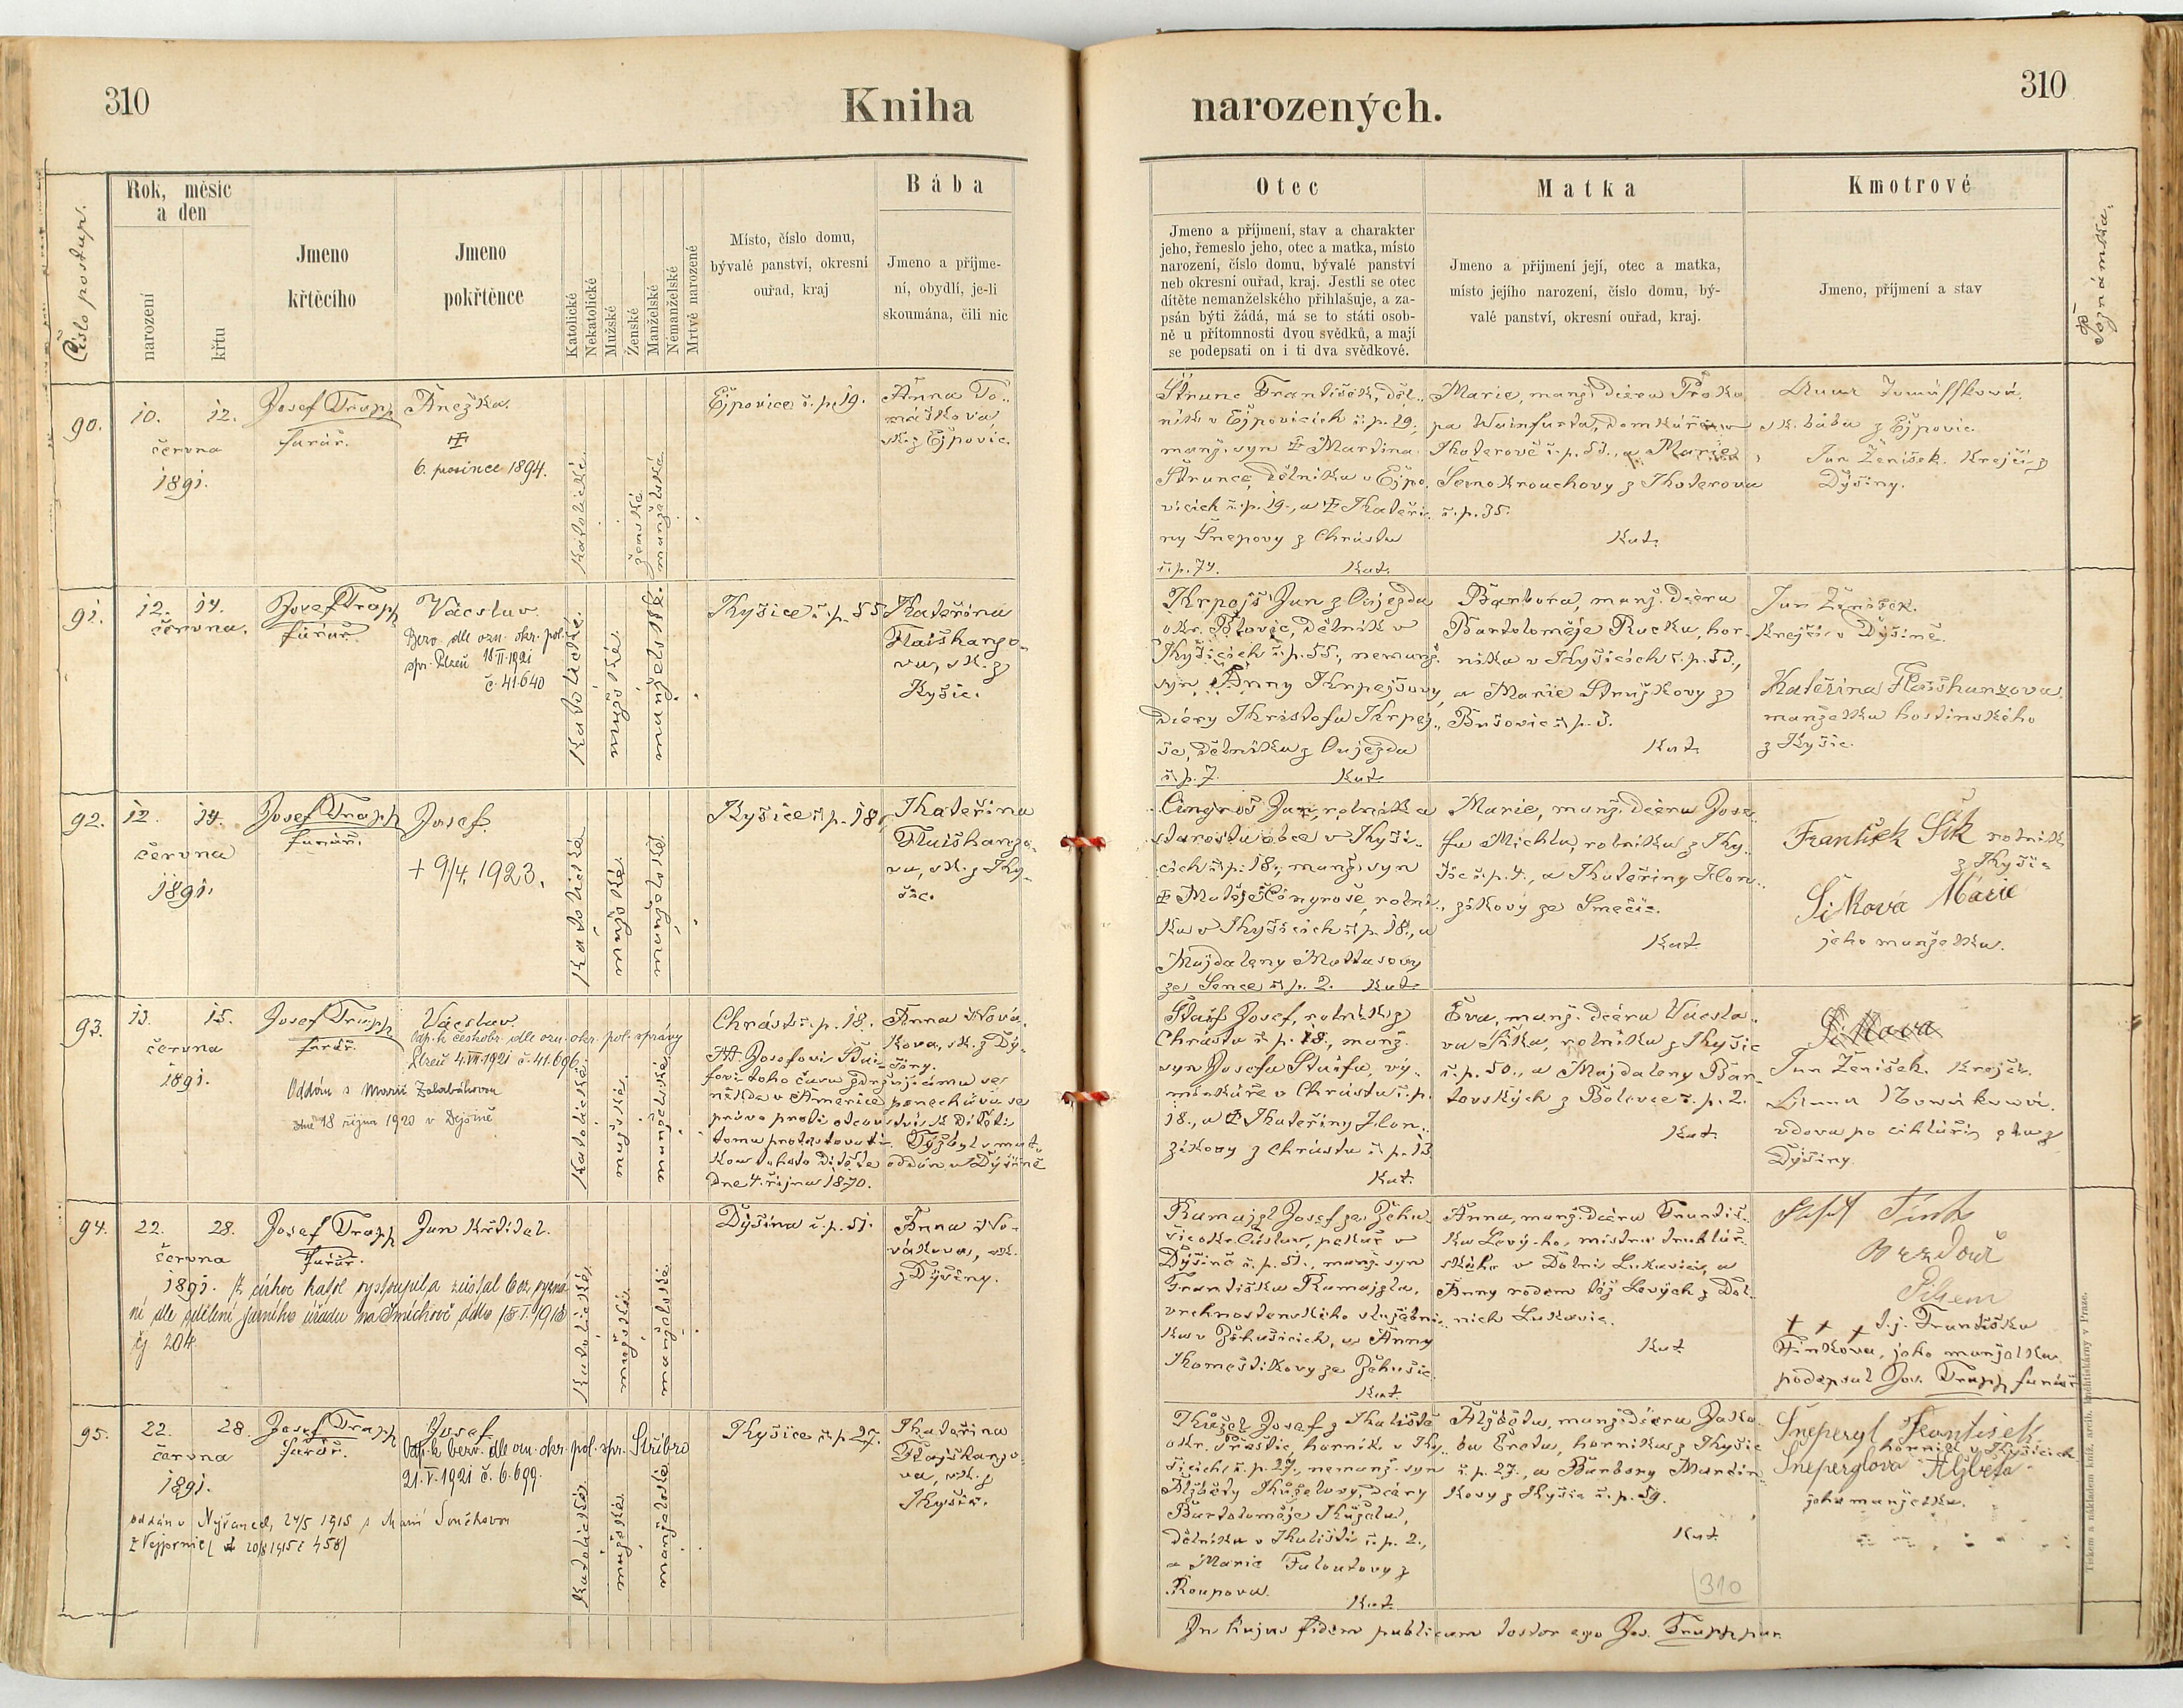 310
Kniha
narozených.
310
Číslo postup.
Rok, měsíc
a den
narození
křtu
Jmeno
křtěcího
Jmeno
pokřtěnce
Katolické
Nekatolické
Mužské
Ženské
Manželské
Nemanželské
Mrtvě narozené
Místo, číslo domu,
bývalé panství, okresní
ouřad, kraj
Bába
Jmeno a příjme-
ní, obydlí, je-li
skoumána, čili nic
Otec
Jmeno a příjmení, stav a charakter
jeho, řemeslo jeho, otec a matka, místo
narození, číslo domu, bývalé panství
neb okresní ouřad, kraj. Jestli se otec
dítěte nemanželského přihlašuje, a za-
psán býti žádá, má se to státi osob-
ně u přítomnosti dvou svědků, a mají
se podepsati on i ti dva svědkové.
Matka
Jmeno a příjmení její, otec a matka,
místo jejího narození, číslo domu, bý-
valé panství, okresní ouřad, kraj.
Kmotrové
Jmeno, příjmení a stav
Poznámka.
90.
10. 12.
června
1891.
Josef Trapp
farář.
Anežka.
6. prosince 1894.
katolické
ženské
manželské
Ejpovice č. p. 19.
Anna To-
máškova,
sk. z Ejpovic.
Štrunc František, děl-
ník v Ejpovicích č. p. 19.,
manž. syn Martina
Štrunce, dělníka v Ejpo-
vicích č. p. 19., a Kateři-
ny Šnepovy z Chrástu
č. p. 74. Kat.
Marie, manž. dcera Proko-
pa Wainfurta, domkáře v
Koterově č. p. 53., a Marie
Černokrouchovy z Koterova
č. p. 35.
Kat.
Anna Tomášková,
sk. bába z Ejpovic.
Jan Ženíšek. Krejčí z
Dýšiny.
91.
12. 14.
června.
Josef Trapp
farář.
Václav
Bezv. dle ozn. okr. pol.
spr. Plzeň 18.II.1921
č. 41.640
katolické.
mužské
manželské.
Kyšice č. p. 55
Kateřina
Flaišhanzo-
va, sk. z
Kyšic.
Krpejš Jan z Oujezda
okr. Plovic, dělník v
Kyšicích č. p. 55., nemanž.
syn Anny Krpejšovy,
dcery Kristofa Krpej-
še, dělníka z Oujezda
č. p. 7. Kat.
Barbora, manž. dcera
Bartoloměje Rucku, hor-
níka v Kyšicích č. p. 53.,
a Marie Stružkovy z
Bušovic č. p. 3.
Kat.
Jan Ženíšek.
Krejčí v Dýšině.
Kateřina Flaišhanzova.
manželka hostinského
z Kyšic.
92.
12. 14.
června
1891.
Josef Trapp
farář.
Josef.
+ 9/4. 1923.
katolické
mužské
manželské
Kyšice č. p. 18.
Kateřina
Flaišhanzo-
va, sk. z Ky-
šic.
Cingroš Jan, rolník a
starosta obce v Kyši-
cích č. p. 18., manž. syn
Matěje Cingroše, rolní-
ka v Kyšicích č. p. 18., a
Majdaleny Mottasovy
ze Sence č. p. 2. Kat.
Marie, manž. dcera Jose-
fa Michla, rolníka z Ky-
šic č. p. 4., a Kateřiny Hon-
zíkovy ze Smečic.
Kat.
František Šik rolník
z Kyšic
Šiková Marie
jeho manželka.
93.
13. 15.
června
1891.
Josef Trapp
farář.
Václav.
Odp. k českobr. dle ozn. okr. pol. správy
Plzeň 4.VII.1921 č. 41.696.
Oddán s Marií Zalabákovou
dne 18 října 1920 v Dýšině
katolické
mužské.
manželské.
Chrást č. p. 18.
Anna Nová-
kova, sk. z Dý-
šiny.
NB. Josefovi Štai-
fovi toho času zdržujícímu se
někde v Americe ponechává se
právo proti otcovství k dítěti
tomu protestovati. Týž byl s mat-
kou tohoto dítěte oddán v Dýšině
dne 4. října 1870.
Štaif Josef, rolník z
Chrástu č. p. 18., manž.
syn Josefa Štaifa, vý-
minkáře v Chrástu č. p.
18., a Kateřiny Hon-
zíkovy z Chrástu č. p. 13
Kat.
Eva, manž. dcera Václa-
va Šika, rolníka z Kyšic
č. p. 50., a Majdaleny Bar-
tovských z Bolevce č. p. 2.
Kat.
Jan Ženíšek. Krejčí.
Anna Nováková.
vdova po cihláři z
Dýšiny.
94.
22. 28.
června
1891.
Josef Trapp
farář.
Jan Křtitel.
Z církve katol. vystoupil a zůstal bez vyzná-
ní dle sdělení farního úřadu na Smíchově ddto 18.I.1918
čj 204
katolické
mužské
manželské
Dýšina č. p. 51.
Anna No-
vákova, sk.
z Dýšiny.
Ramajzl Josef ze Žehu-
šic okr. Čáslav, pekař v
Dýšině č. p. 51., manž. syn
Františka Ramajzla,
vrchnostenského služební-
ka v Žehušicích, a Anny
Komeštíkovy ze Žehušic.
Kat.
Anna, manž. dcera Františ-
ka Levého, mistra truhlář-
ského v Dolní Lukavici, a
Anny rodem též Levých z Dol-
ních Lukavic.
Kat
+ + + t. j. Františka
Finkova, jeho manželka
podepsal Jos. Trapp farář
95.
22. 28.
června
1891.
Josef Trapp
farář.
Josef
Odp. k bezv. dle ozn. okr. pol. spr. Stříbro
21.V.1921 č. 6.699.
oddán v Nýřanech, 24/5 1915 s Marií Součkovou
z Vejprnic
katolické
mužské
manželské
Kyšice č. p. 27.
Kateřina
Flajšhanzo-
va, sk. z
Kyšic.
Kůžel Josef z Kaliště
okr. Přeštic, horník v Ky-
šicích č. p. 27., nemanž. syn
Alžběty Kůželovy, dcery
Bartoloměje Kůžela,
dělníka v Kališti č. p. 2.,
a Marie Faloutovy z
Roupova. Kat.
Alžběta, manž. dcera Jaku-
ba Breta, horníka z Kyšic
č. p. 27., a Barbory Martín-
kovy z Kyšic č. p. 59.
Kat
Šnepergl František
horník v Kyšicích
Šneperglova Alžběta
jeho manželka.
310
In hujus fidem publicam testor ego Jos. Trapp par.
Tiskem a nákladem kníž. arcib. knihtiskárny v Praze.